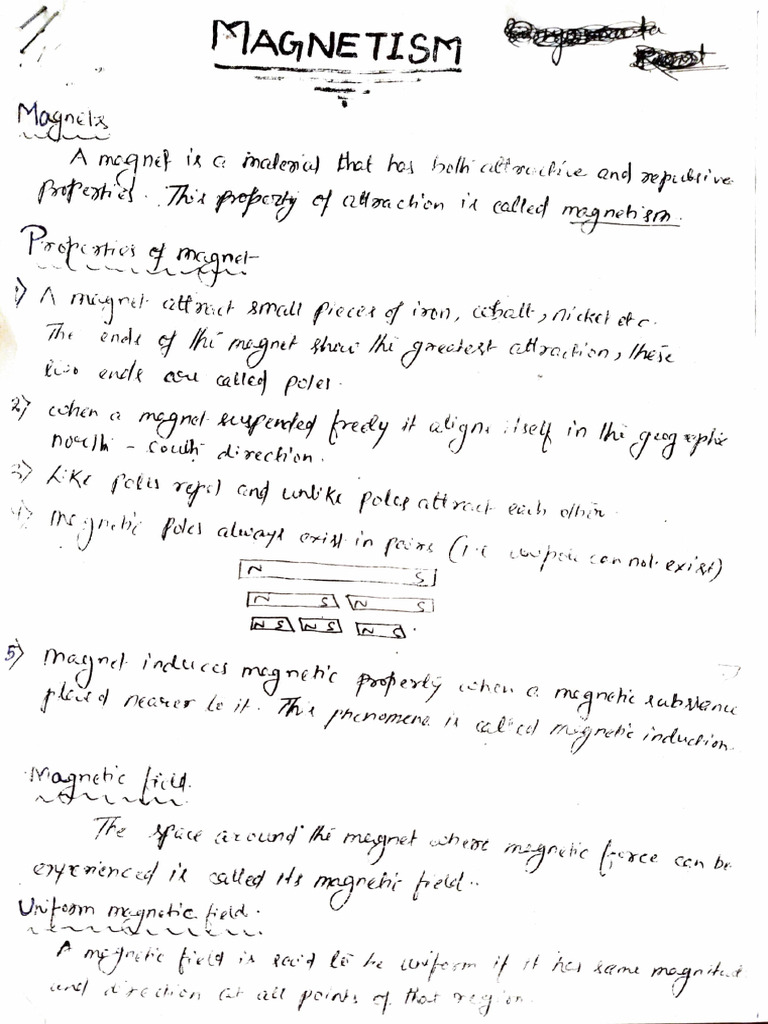 MAGNETISM
Magnets
A magnet is a material that has both attractive and repulsive
properties. This property of attraction is called magnetism.
Properties of magnet
1) A magnet attract small pieces of iron, cobalt, nickel etc.
The ends of the magnet show the greatest attraction, these
two ends are called poles.
2) when a magnet suspended freely it aligns itself in the geographic
north - south direction.
3) Like poles repel and unlike poles attract each other.
4) Magnetic poles always exist in pairs (i.e unipole can not exist)
N S
N S N S
N S N S N S
5) Magnet induces magnetic property when a magnetic substance
placed nearer to it. This phenomena is called magnetic induction.
Magnetic field.
The space around the magnet where magnetic force can be
experienced is called its magnetic field.
Uniform magnetic field.
A magnetic field is said to be uniform if it has same magnitud
and direction at all points of that region.